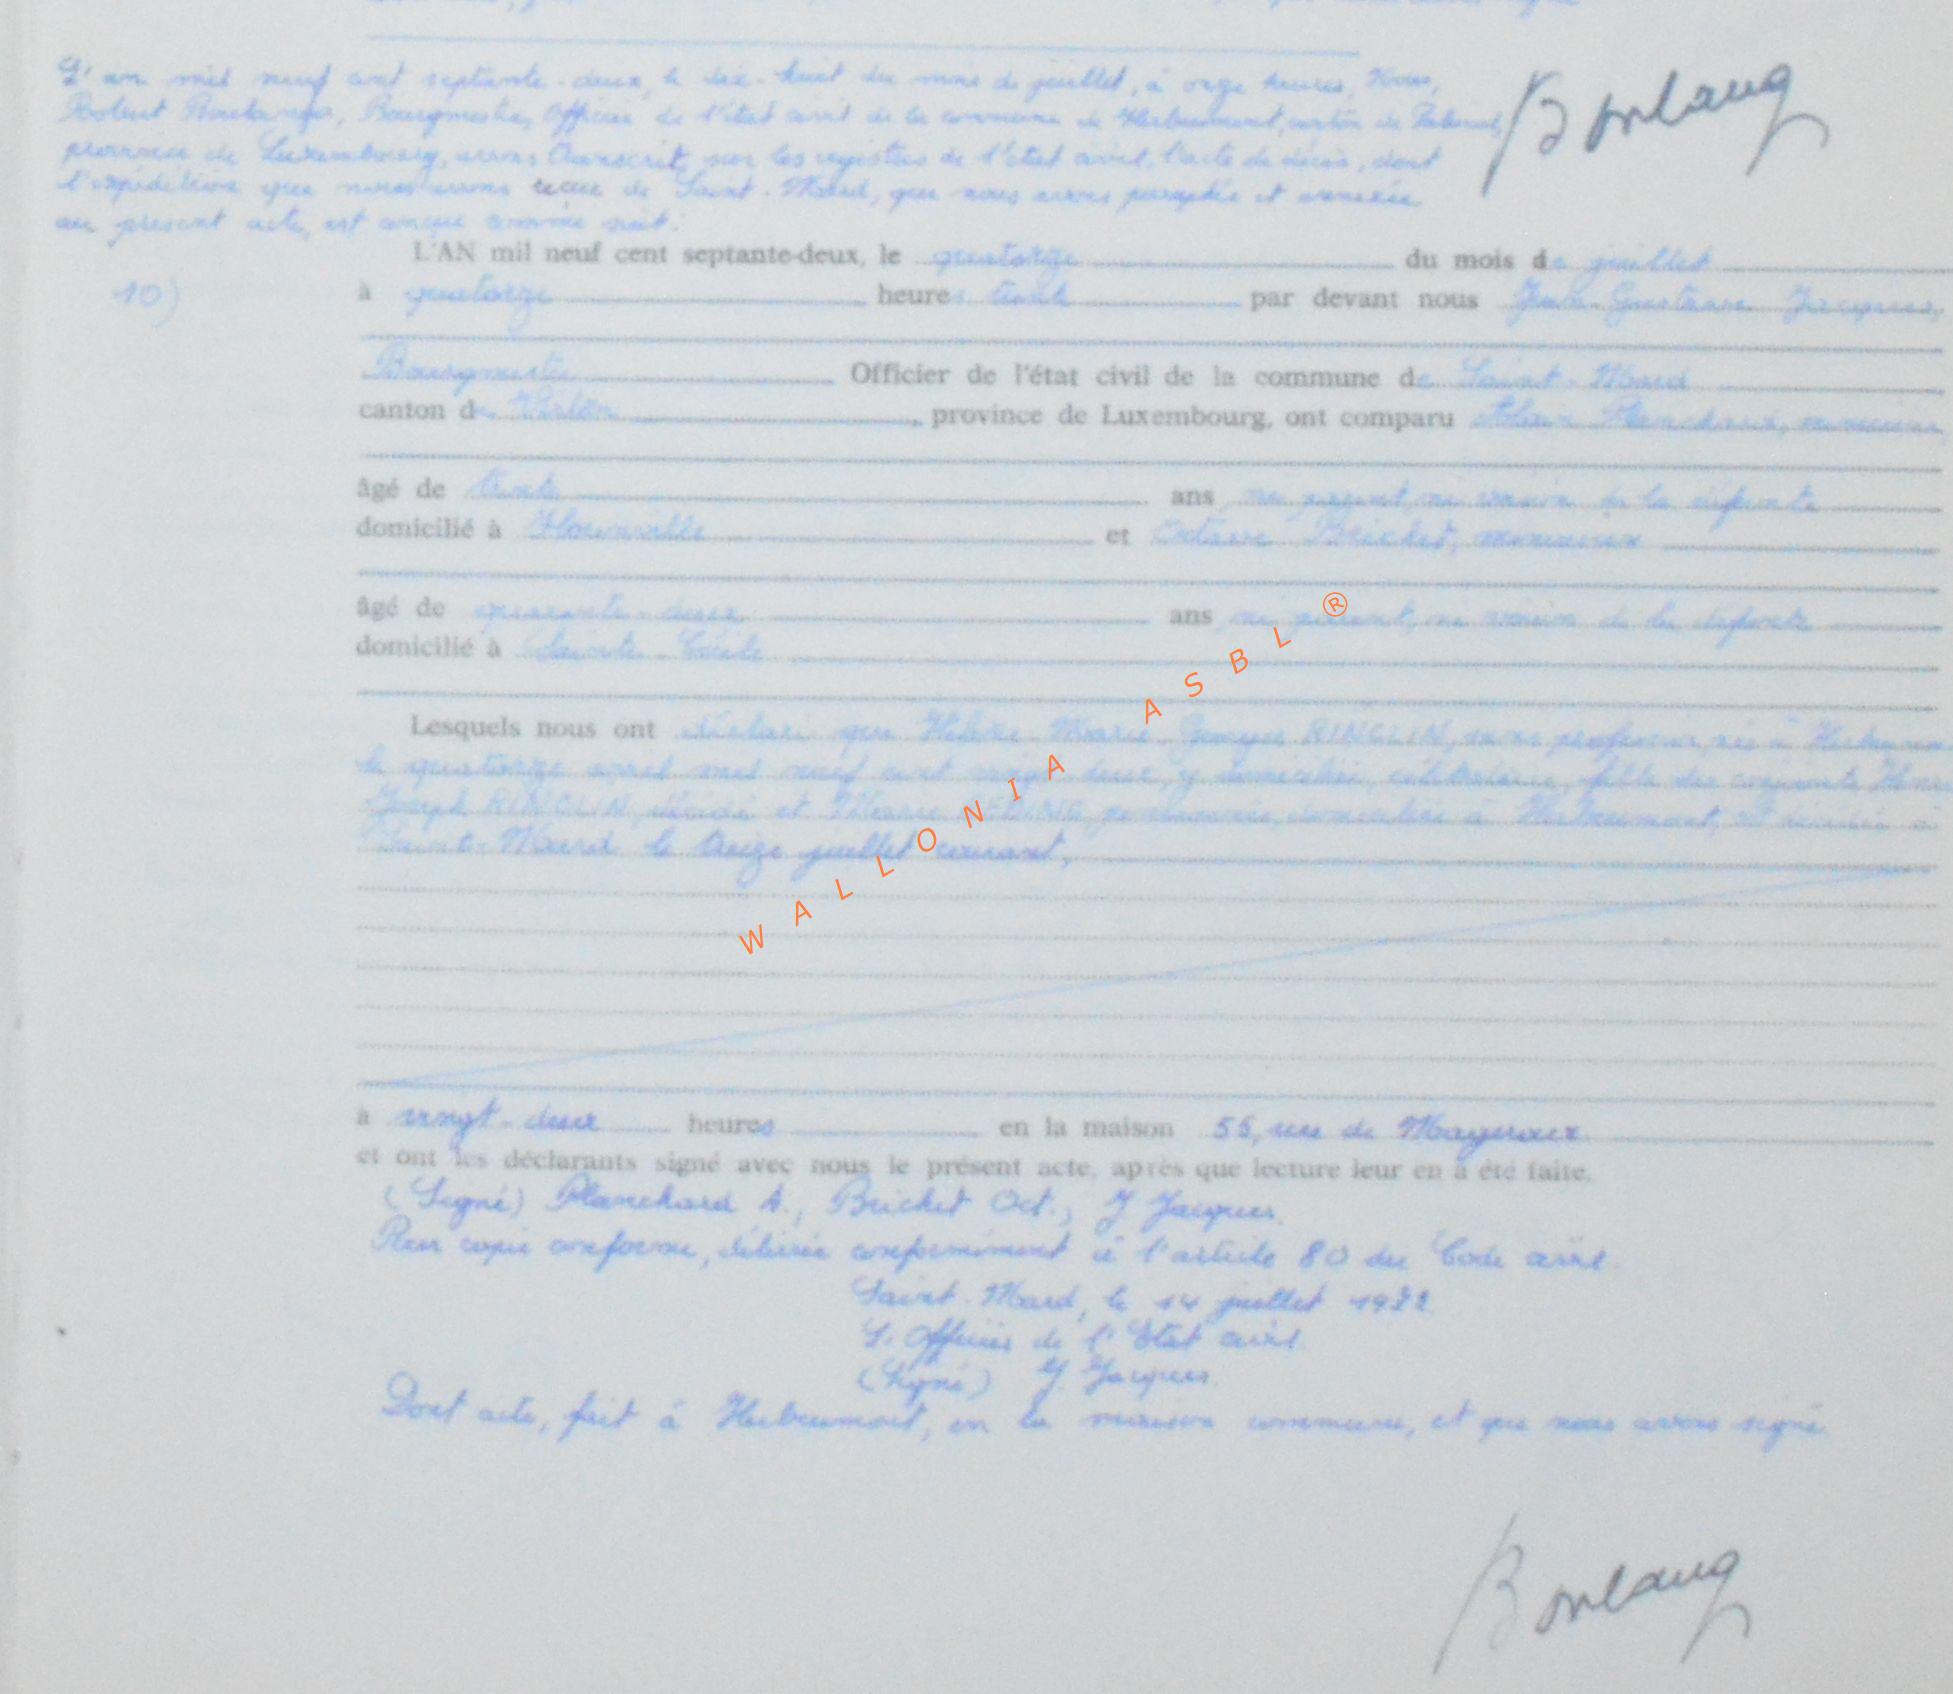 L'an mil neuf cent septante-deux, le dix-huit du mois de juillet, à onze heures, Nous,
Robert Boulanger, Bourgmestre, Officier de l'état civil de la commune de Herbeumont, canton de
province de Luxembourg, avons transcrit, sur les registres de l'état civil, l'acte de décès, dont
l'expédition que nous avons reçue de Saint-Mard, que nous avons paraphée et annexée
au présent acte, est conçue comme suit:
L'AN mil neuf cent septante-deux, le quatorze du mois de juillet
10) à quatorze heures trente par devant nous Jean Gustave Jacques,
Bourgmestre Officier de l'état civil de la commune de Saint-Mard
canton de Virton, province de Luxembourg, ont comparu Alain Planchard,
âgé de trente ans ni parent, ni voisin de la défunte
domicilié à et Octave Brichet,
âgé de quarante-deux ans, ni parent, ni voisin de la défunte
domicilié à Sainte-Cécile
Lesquels nous ont déclaré que Marie Georges RINGLIN, sans profession, née à
le quatorze avril mil neuf cent vingt-deux, y domiciliée, célibataire, fille des conjoints
Joseph RINGLIN, décédé et Marie domiciliée à Herbeumont, est décédée à
Saint-Mard le treize juillet courant,
à vingt-deux heures en la maison 55, rue de Mageroux
et ont les déclarants signé avec nous le présent acte, après que lecture leur en a été faite.
(Signé) Planchard A., Brichet Oct., J. Jacques.
Pour copie conforme, délivrée conformément à l'article 80 du Code civil.
Saint-Mard, le 14 juillet 1972.
L'Officier de l'Etat civil.
(Signé) J. Jacques.
Dont acte, fait à Herbeumont, en la maison commune, et que nous avons signé.
Boulang
Boulang
WALLONIA ASBL ®